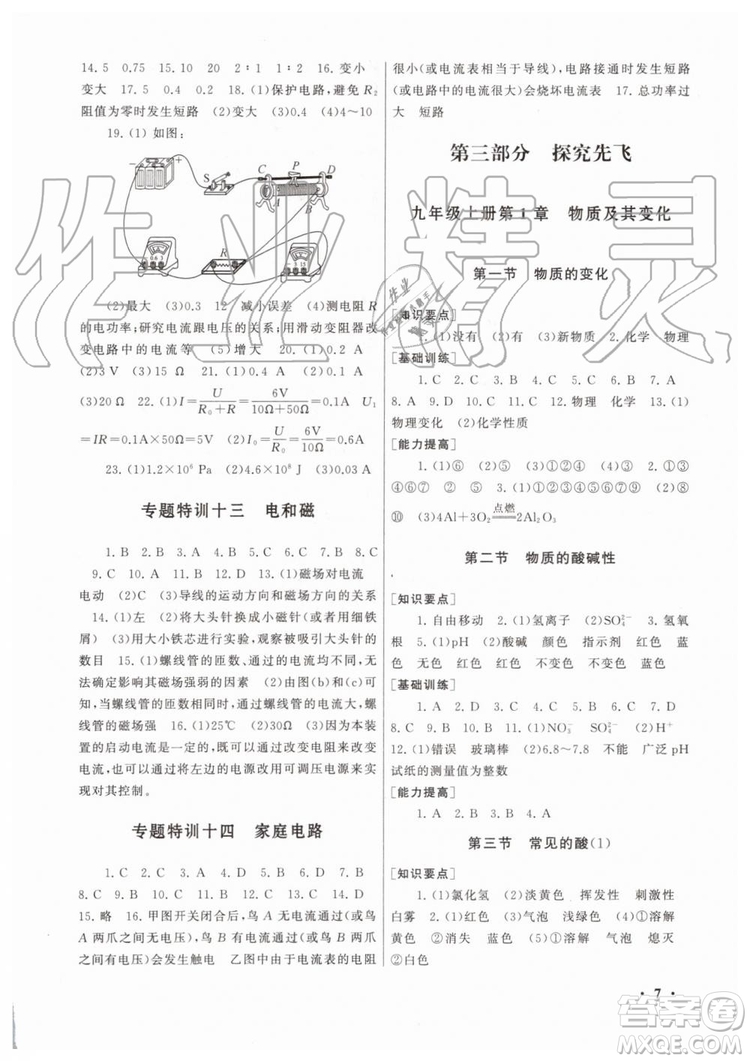 14. 5　0.75　15. 10　2∶1　2∶1　16. 变小
变大　17. 5　0.4　0.2　18. (1)保护电路,避免 R₂
阻值为零时发生短路　(2)变大　(3)0.4　(4)4～10
19. (1) 如图:
S
C P D
A B
0.6 3
R
(2)最大　(3)0.3　12　减小误差　(4)测电阻 R
的电功率;研究电流跟电压的关系;用滑动变阻器改
变电路中的电流等　(5)增大　20. (1)0.2 A
(2)3 V　(3)15 Ω　21. (1)0.4 A　(2)0.1 A
(3)20Ω　22. (1)I＝U/(R₀＋R)＝6V/(10Ω＋50Ω)＝0.1A　U₁
＝IR＝0.1A×50Ω＝5V　(2)I₀＝U/R₀＝6V/10Ω＝0.6A
23. (1)1.2×10⁶ Pa　(2)6.4×10⁸ J　(3)0.03 A
专题特训十三　电和磁
1. B　2. B　3. A　4. A　5. B　6. B　7. B　8. C
9. C　10. D　11. A　12. A　13. (1)磁场对电流
电动　(2)导线的运动方向和磁场方向的关系
14. (1)左　(2)将大头针换成小磁针(或者用细铁
屑)　(3)用大小铁芯进行实验,观察被吸引大头针的
数目　15. (1)螺线管的匝数、电流大小都不同,无法
判断影响其磁场强弱的因素　(2)由图(b)和(c)可
知,当螺线管的匝数相同时,螺线管的电流大,螺
线管的磁场强　16. (1)25℃　(2)30Ω　(3)因为本装
置的启动电流是一定的,既可通过改变电阻来改变
电流,也可将左边的电源改用可调压电源来实
现对其控制。
专题特训十四　家庭电路
1. C　2. B　3. A　4. B　5. A　6. B　7. B
8. C　9. C　10. B　11. D　12. D　13. A　14. B
15. 略　16. 甲图开关闭合后,鸟 A 被短路(或者鸟
A 两爪之间无电压),鸟 B 两爪之间有电压,所以鸟
B 会发生触电　乙图中由于电流表的电阻
很小(或电流表相当于导线),电路接通时发生短路
(或电路中的电流很大)会烧坏电流表　17. 总功率过
大　短路
第三部分　探究先飞
九年级上册第 1 章　物质及其变化
第一节　物质的变化
[知识要点]
1. (1)没有　(2)有　(3)新物质　2. 化学　物理
[基础训练]
1. C　2. C　3. C　4. C　5. D　6. C　7. A
8. A　9. D　10. C　11. D　12. 物理　化学　13. (1)
物理变化　(2)化学性质
[能力提高]
1. (1)⑥　(2)⑤　(3)①②③④　2. ①③
④⑥⑦　②⑤　3. D　4. (1)①③④⑦⑨　(2)②⑧
⑩　(3)4Al＋3O₂ ═点燃═ 2Al₂O₃
第二节　物质的酸碱性
[知识要点]
1. 自由移动　2. (1)氢离子　(2)SO₄²⁻　3. 氢氧
根　4. (1)pH　(2)酸碱　颜色　指示剂　红色　蓝
色　无色　红色　红色　不变色　不变色　蓝色
[基础训练]
1. C　2. C　3. D　4. B　5. B　6. A　7. C
8. C　9. A　10. A　11. (1)NO₃⁻　(2)H⁺
12. (1)错误　玻璃棒　(2)6.8～7.8　不能　广泛 pH
试纸的测量值为整数
[能力提高]
1. A　2. B　3. B　4. A
第三节　常见的酸(1)
[知识要点]
1. (1)氯化氢　(2)淡黄色　挥发性　刺激性
白雾　2. (1)红色　(2)①气泡　浅绿色　②溶解
黄色　(3)①气泡　②消失　蓝色　(4)气泡　熄灭
(5)②白色
· 7 ·
作业精灵
答案圈
MXQE.COM